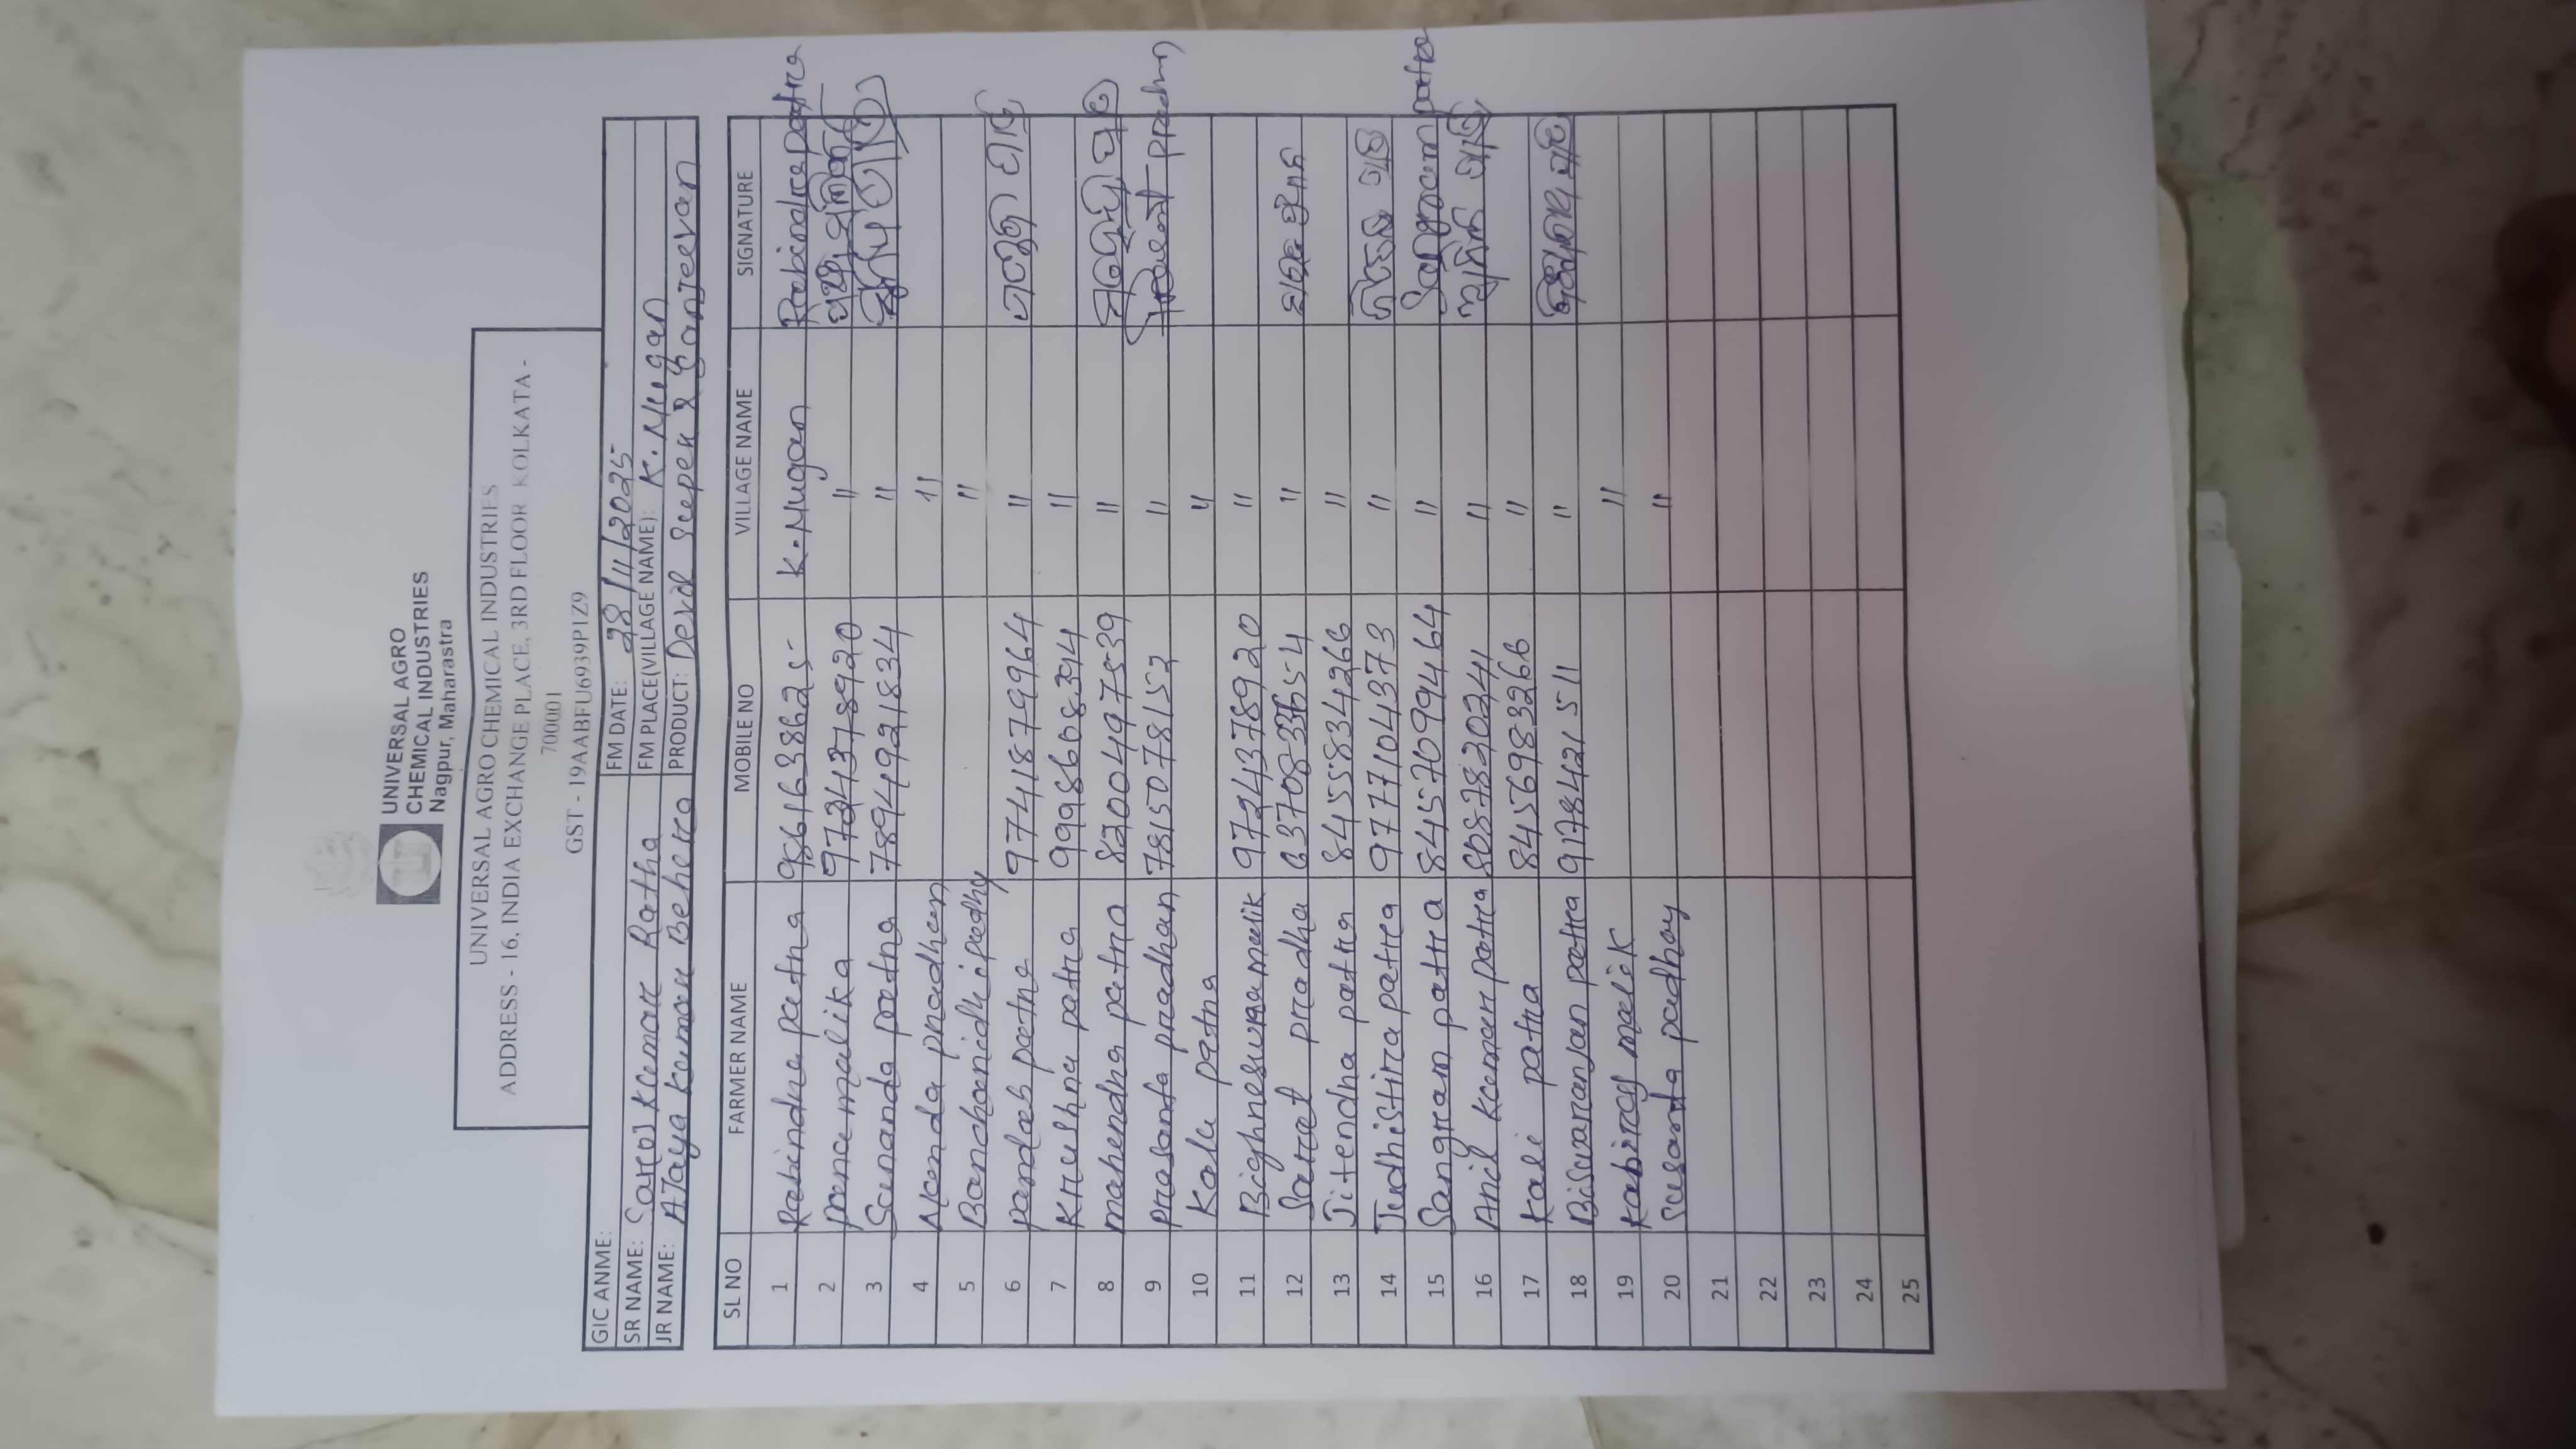 UNIVERSAL AGRO
CHEMICAL INDUSTRIES
Nagpur, Maharastra
UNIVERSAL AGRO CHEMICAL INDUSTRIES
ADDRESS - 16, INDIA EXCHANGE PLACE, 3RD FLOOR KOLKATA -
700001
GST - 19AABFU6939P1Z9
GIC ANME: FM DATE: 28/11/2025
SR NAME: Saroj Kumar Ratha FM PLACE(VILLAGE NAME): K. Nugan
JR NAME: AJaya Kumar Behera PRODUCT: Deval Super & Sanjeevan
SL NO FARMER NAME MOBILE NO VILLAGE NAME SIGNATURE
1 Rabindra patra 9861638625 K. Nugan Rabindra patra
2 pana malika "
3 Sunanda patra 7894921834 "
4 Nanda pradhan "
5 Banchanidhi padhy "
6 pandab patra 9741879964 "
7 Krushna patra 9998608394 "
8 mahendra patra 8200497539 "
9 prasanta pradhan 7815078152 " pradhan
10 Kalu patra "
11 Bighneswara malik 9724378920 "
12 Sarat pradha "
13 Jitendra patra 8455834266 "
14 Judhistira patra 9777104373 "
15 Sangram patra 8457099464 " patra
16 Anil Kumar patra 8087830241 "
17 Kali patra 8456983266 "
18 Biswaranjan patra 9178421511 "
19 Kabiraj malik "
20 Susanta padhay "
21
22
23
24
25